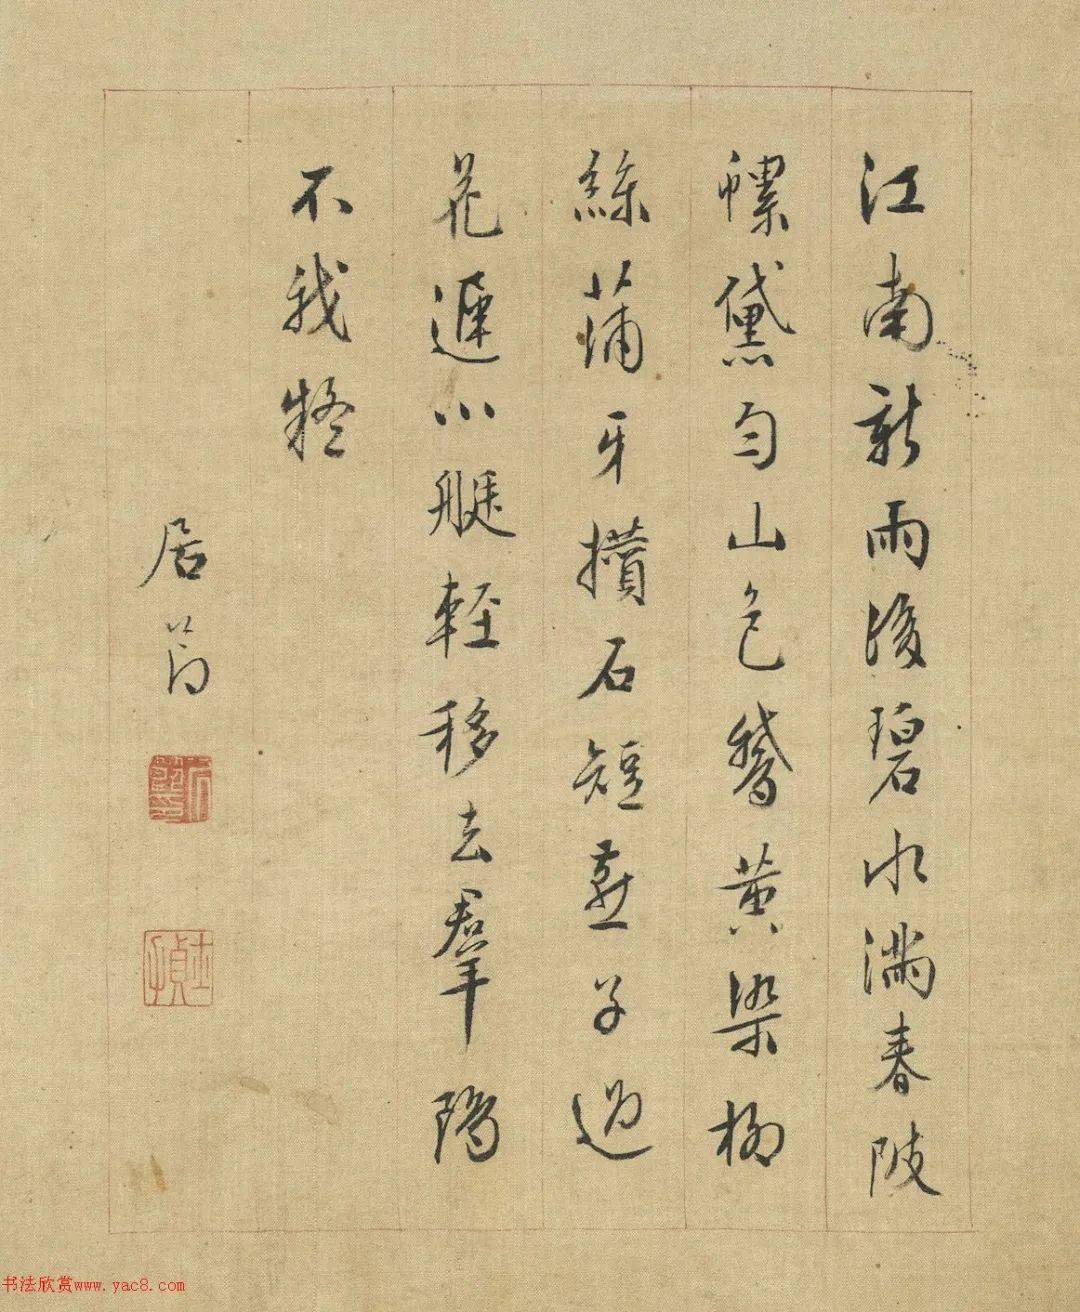 江南新雨後碧水滿春陂
螺黛勻山色鵝黃染柳
絲蒲牙攢石短燕子過
花遲小艇輕移去羣鷗
不我疑
居節
书法欣赏www.yac8.com